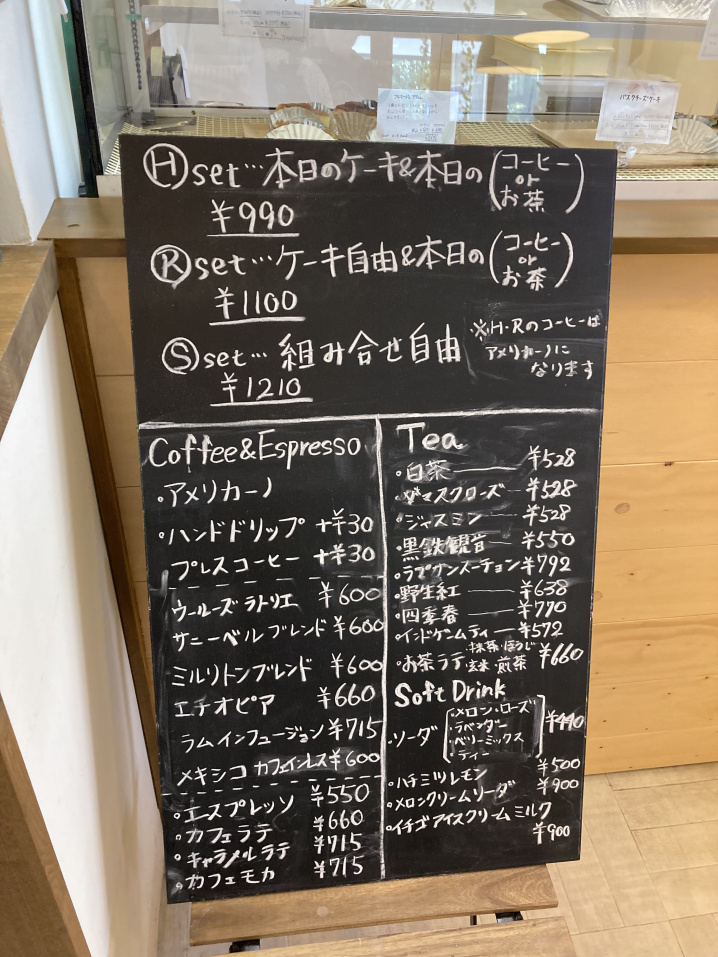 バスクチーズケーキ
Ⓗset…本日のケーキ&本日の(コーヒー or お茶)
¥990
Ⓡset…ケーキ自由&本日の(コーヒー or お茶)
¥1100
Ⓢset…組み合せ自由
¥1210
※H・Rのコーヒーは
アメリカーノに
なります
Coffee&Espresso
・アメリカーノ
・ハンドドリップ +¥30
プレスコーヒー +¥30
ウールーズラトリエ ¥600
サニーベルブレンド ¥600
ミルリトンブレンド ¥600
エチオピア ¥660
ラムインフュージョン ¥715
メキシコ カフェインレス ¥600
・エスプレッソ ¥550
・カフェラテ ¥660
・キャラメルラテ ¥715
・カフェモカ ¥715
Tea
・白茶 ¥528
・ダマスクローズ ¥528
・ジャスミン ¥528
・黒鉄観音 ¥550
・ラプサンスーチョン ¥792
・野生紅 ¥638
・四季春 ¥770
・インドゲームティ ¥572
・お茶ラテ 抹茶・ほうじ 玄米・煎茶 ¥660
Soft Drink
・ソーダ ¥440
・メロン・ローズ
・ラベンダー
・ベリーミックス
・ティー
・ハチミツレモン ¥500
・メロンクリームソーダ ¥900
・イチゴアイスクリームミルク
¥900